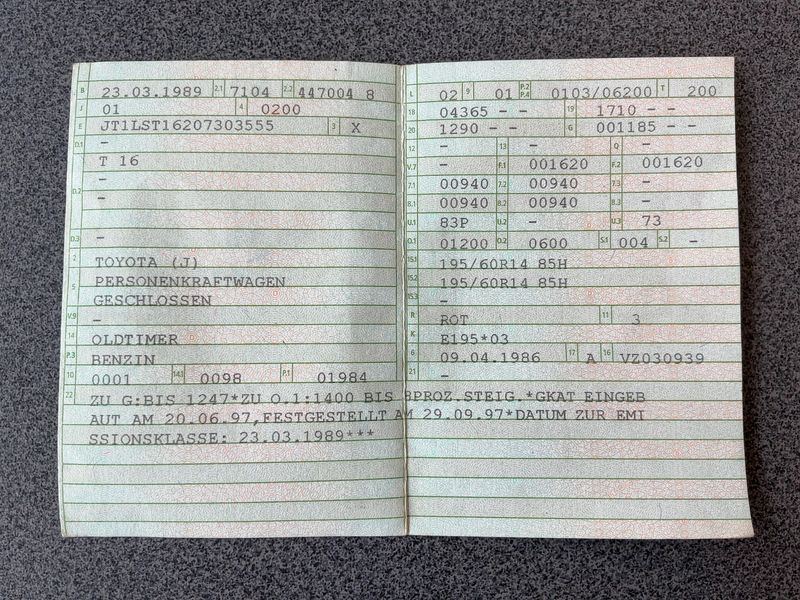 B 23.03.1989 2.1 7104 2.2 447004 8
J 01 4 0200
E JT1LST16207303555 3 X
D.1 -
T 16
D.2 -
-
D.3 -
2 TOYOTA (J)
5 PERSONENKRAFTWAGEN
GESCHLOSSEN
V.9 -
14 OLDTIMER
P.3 BENZIN
10 0001 14.1 0098 P.1 01984
22 ZU G:BIS 1247*ZU O.1:1400 BIS 8PROZ.STEIG.*GKAT EINGEB
AUT AM 20.06.97,FESTGESTELLT AM 29.09.97*DATUM ZUR EMI
SSIONSKLASSE: 23.03.1989***
L 02 9 01 P.2 P.4 0103/06200 T 200
18 04365 - - 19 1710 - -
20 1290 - - G 001185 - -
12 - 13 - Q -
V.7 - F.1 001620 F.2 001620
7.1 00940 7.2 00940 7.3 -
8.1 00940 8.2 00940 8.3 -
U.1 83P U.2 - U.3 73
O.1 01200 O.2 0600 S.1 004 S.2 -
15.1 195/60R14 85H
15.2 195/60R14 85H
15.3 -
R ROT 11 3
K E195*03
6 09.04.1986 17 A 16 VZ030939
21 -